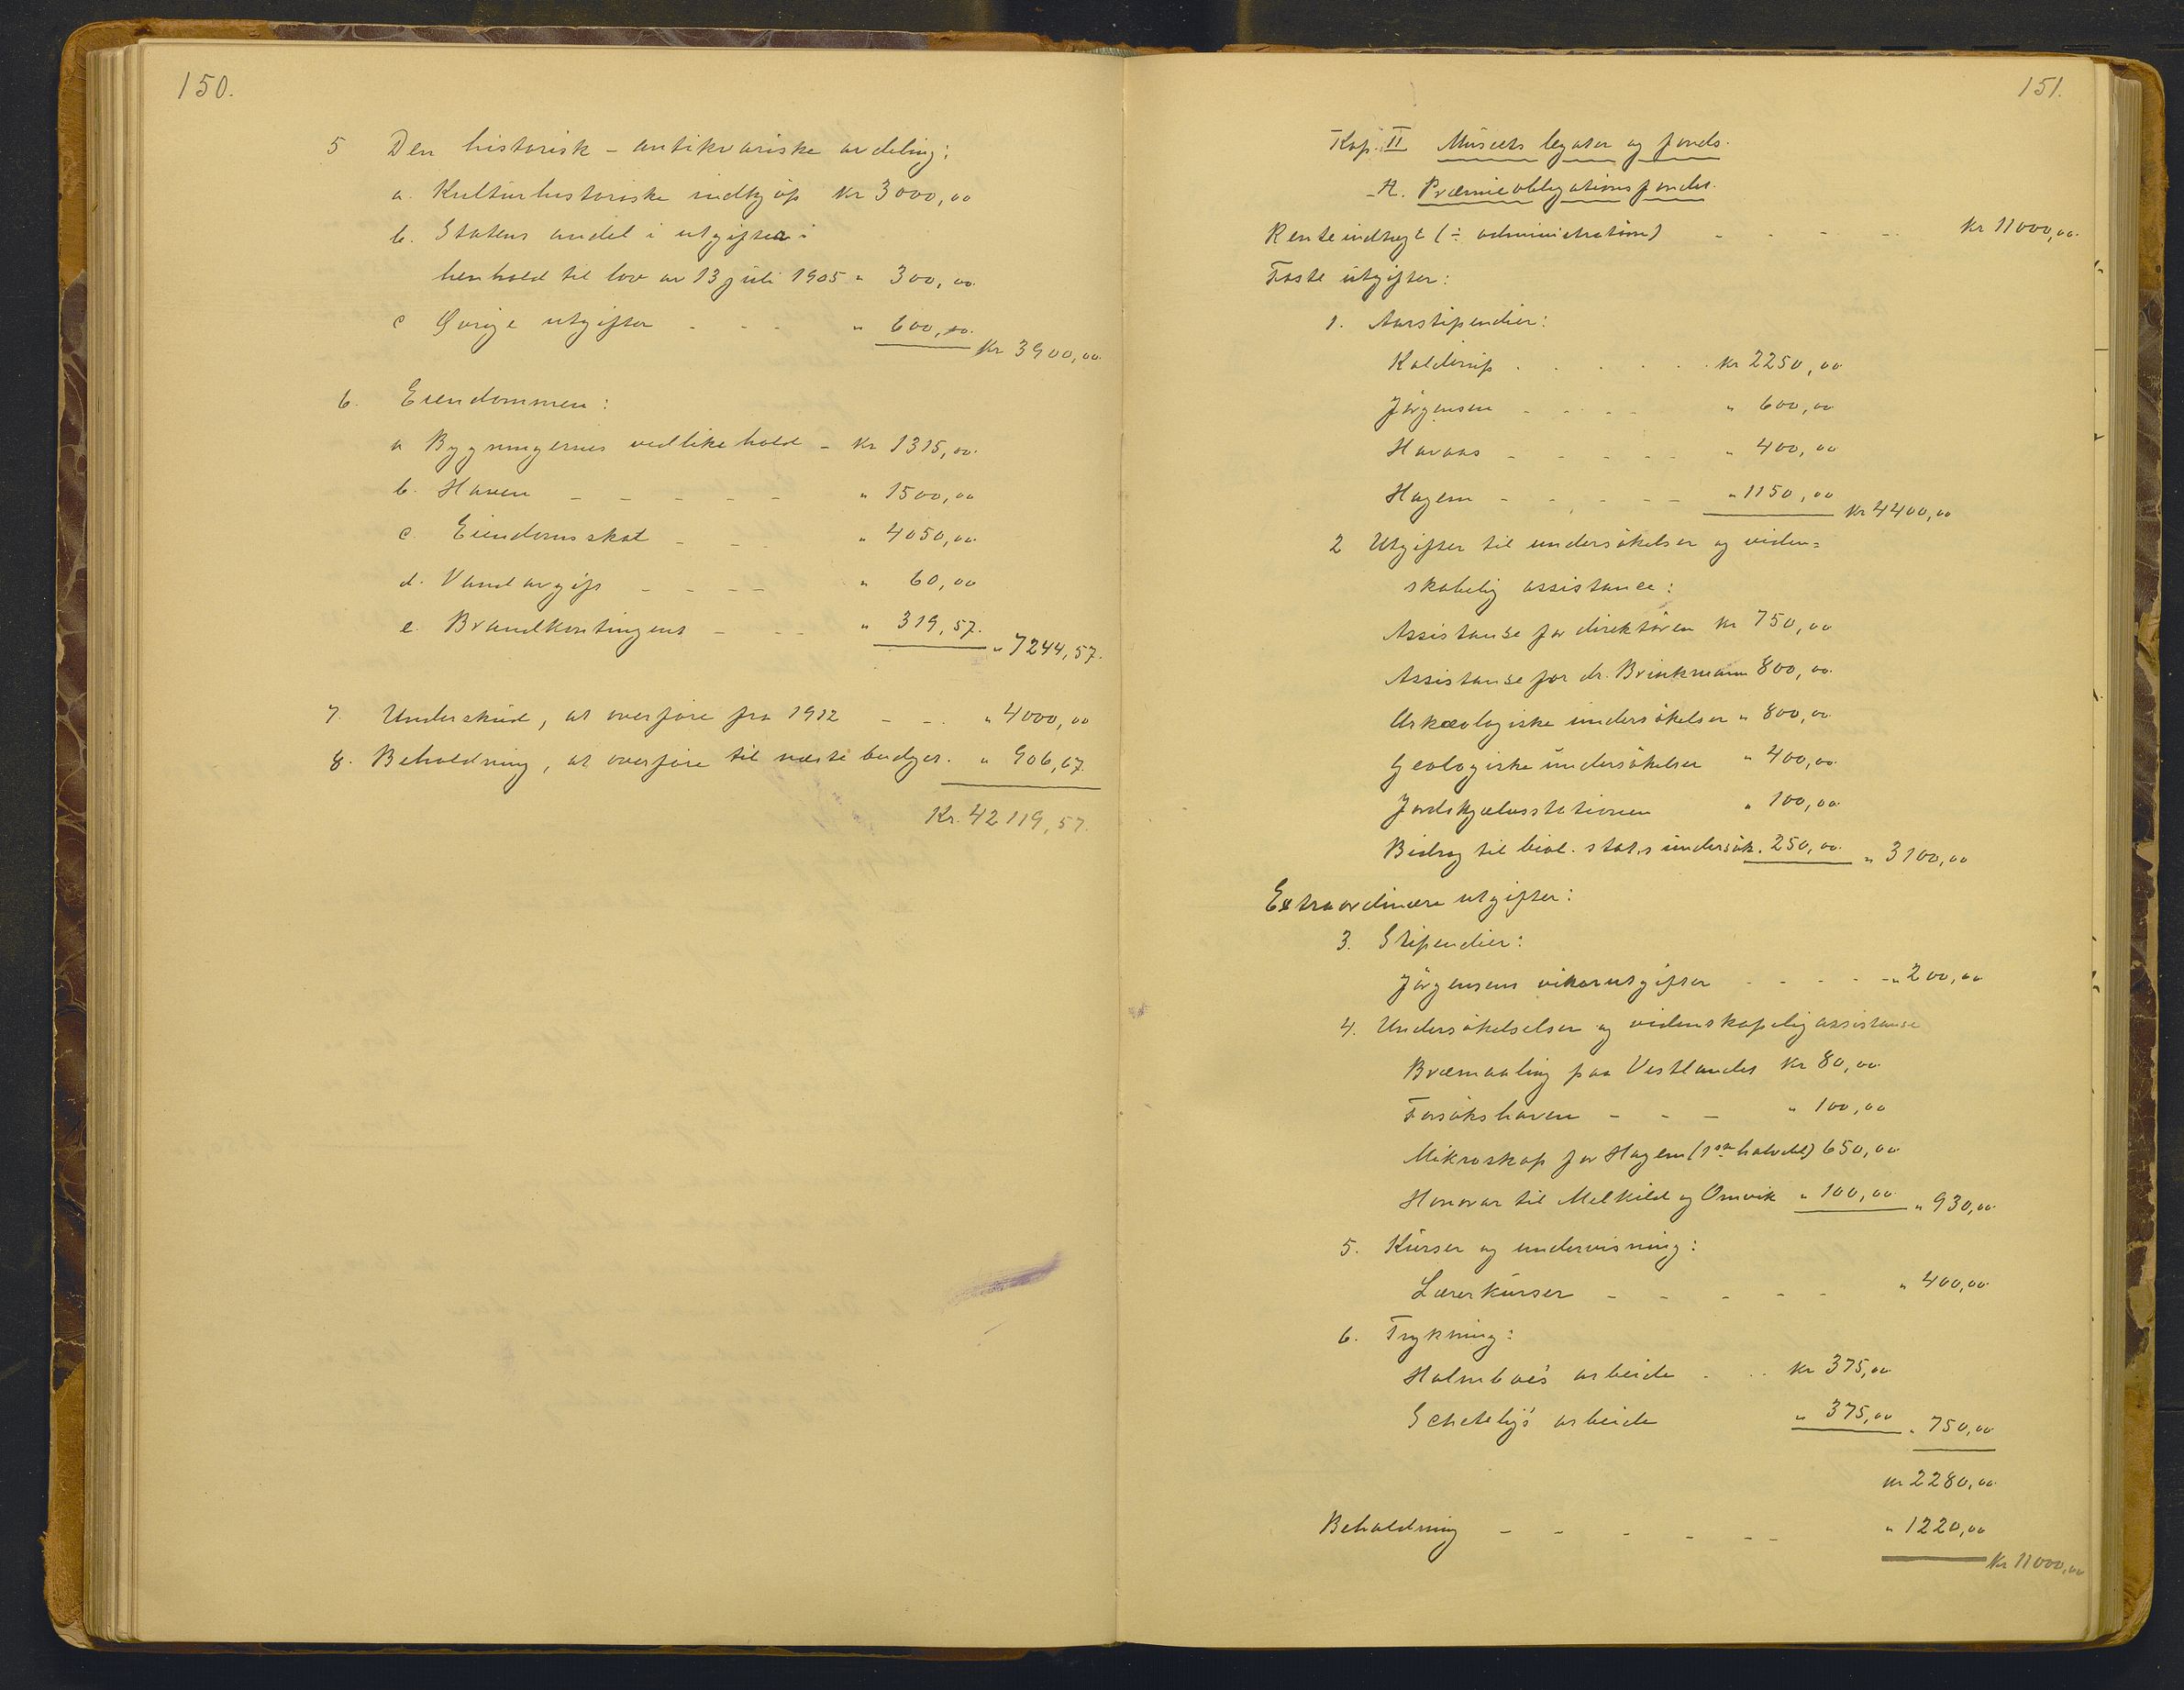 150.
5 Den historisk-antikvariske avdeling:
a. Kulturhistoriske indkjøp Kr 3000,00
b. Statens andel i utgifter i
henhold til lov av 13 juli 1905 " 300,00
c Øvrige utgifter - - - " 600,00
Kr 3900,00
6. Eiendommen:
a Bygningernes vedlikehold - Kr 1315,00
b. Haven - - - - - " 1500,00
c. Eiendomsskat - - - " 4050,00
d. Vandavgift - - - - " 60,00
e. Brandkontingent - - - " 319,57
" 7244,57.
7. Underskud, at overføre fra 1912 - - - " 4000,00
8. Beholdning, at overføre til næste budget. " 906,07
Kr. 42119,57.
151.
Kap. II Museets legater og fonds.
A. Præmieobligationsfondet.
Renteindtægt (÷ administration) - - - - Kr 11000,00
Faste utgifter:
1. Aarsstipendier:
Kolderup . . . . . . Kr 2250,00
Jørgensen - - - - " 600,00
Havaas - - - - - " 400,00
Hagem - - - - - " 1150,00
Kr 4400,00
2 Utgifter til undersøkelser og viden=
skabelig assistance:
Assistanse for direktøren Kr 750,00
Assistanse for dr. Brinkmann 800,00
Arkæologiske undersøkelser " 800,00
Geologiske undersøkelser " 400,00
Jordskjælvsstationen " 100,00
Bidrag til biol. stat.s undersøk. 250,00 " 3100,00
Extraordinære utgifter:
3. Stipendier:
Jørgensens vikarutgifter - - - - " 200,00
4. Undersøkelselser og videnskapelig assistanse
Bræmaaling paa Vestlandet Kr 80,00
Forsøkshaven - - - " 100,00
Mikroskop for Hagem (1ste halvdel) 650,00
Honorar til Melkild og Omvik " 100,00 " 930,00
5. Kurser og undervisning:
Lærerkurser - - - - - " 400,00
6. Trykning:
Holmboe's arbeide . . . Kr 375,00
Schetelig's arbeide " 375,00 " 750,00
Kr 2280,00
Beholdning - - - - - - " 1220,00
Kr 11000,00